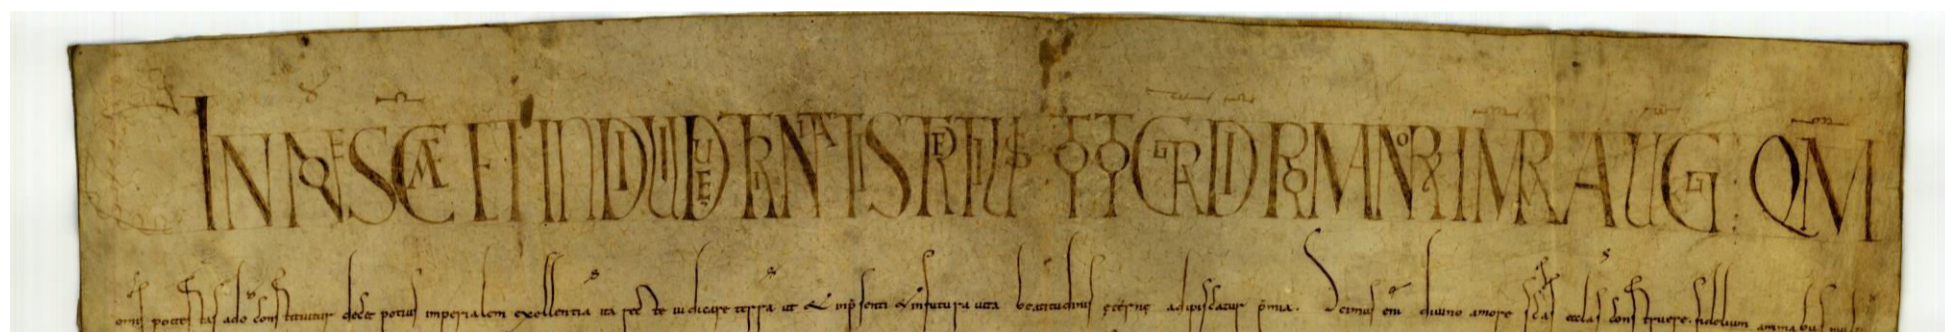 C IN NOE SCAE ET INDIUIDUE TRINITATIS TERTIUS OTTO GRA DI ROMANOR IMR AUG QM
omis potestas a do constituitur decet potius imperialem excellentia ita recte iudicare terra ut & in psenti & in futura uita beatitudinis ęterne adipiscatur pmia. Scimus eni diuino amore scas ecclas construere. fidelium animabus